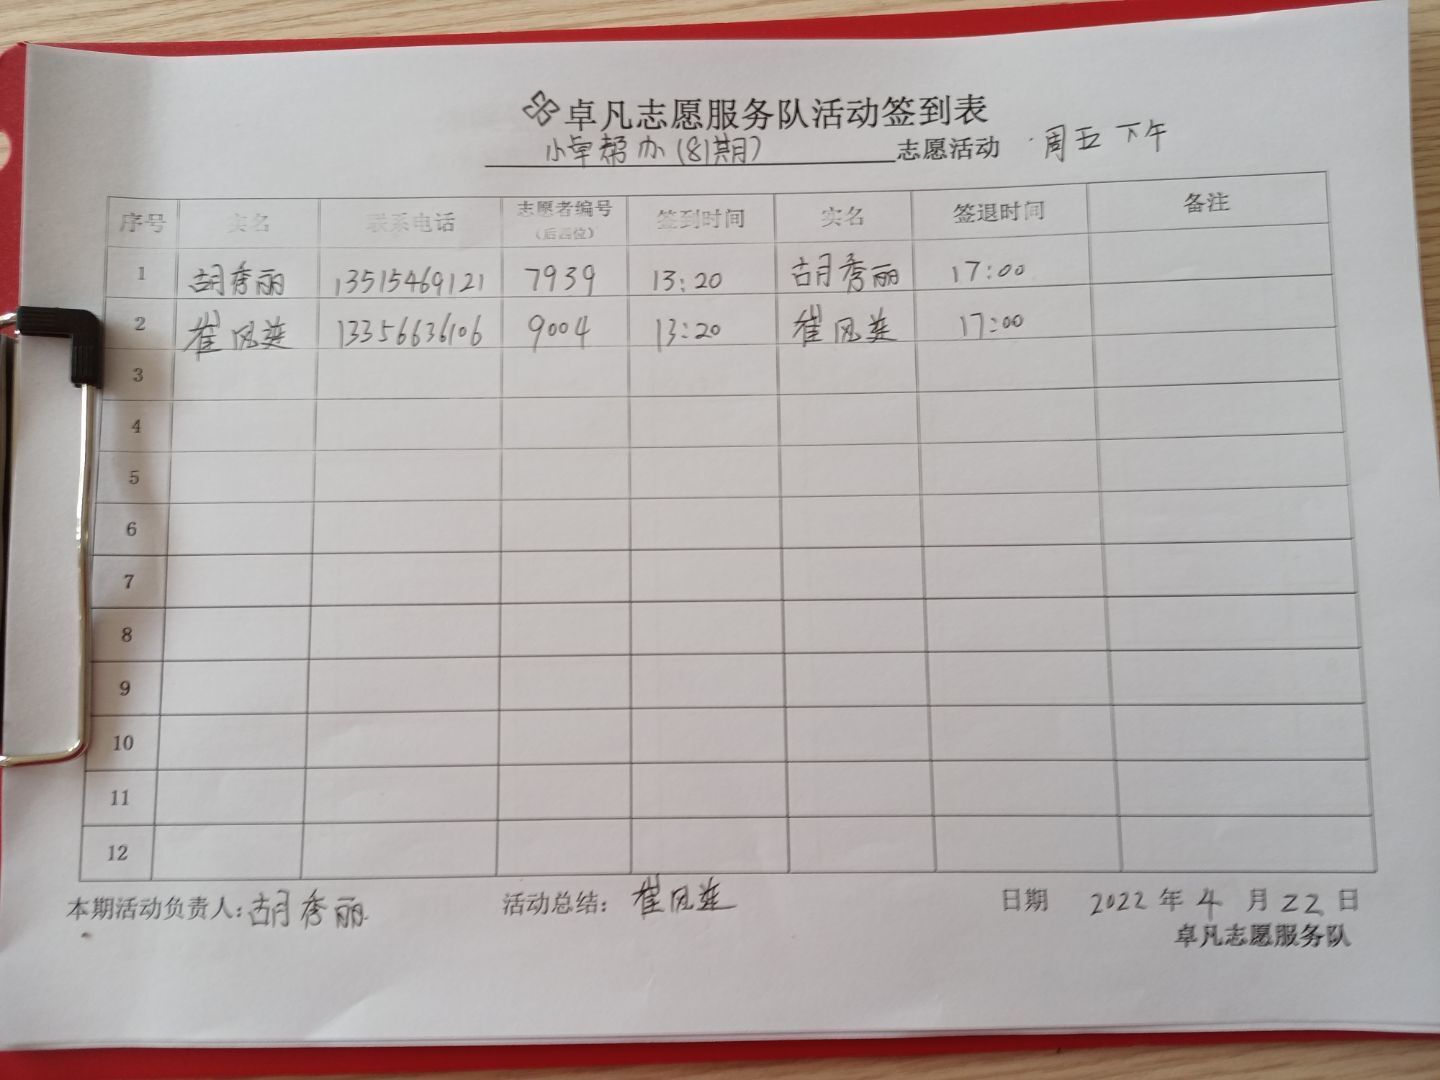 卓凡志愿服务队活动签到表
小卓帮办(81期) 志愿活动 周五下午
序号 实名 联系电话 志愿者编号(后四位) 签到时间 实名 签退时间 备注
1 胡秀丽 13515469121 7939 13:20 胡秀丽 17:00
2 崔风莲 13356636106 9004 13:20 崔风莲 17:00
3
4
5
6
7
8
9
10
11
12
本期活动负责人:胡秀丽 活动总结:崔风莲 日期 2022年4月22日
卓凡志愿服务队